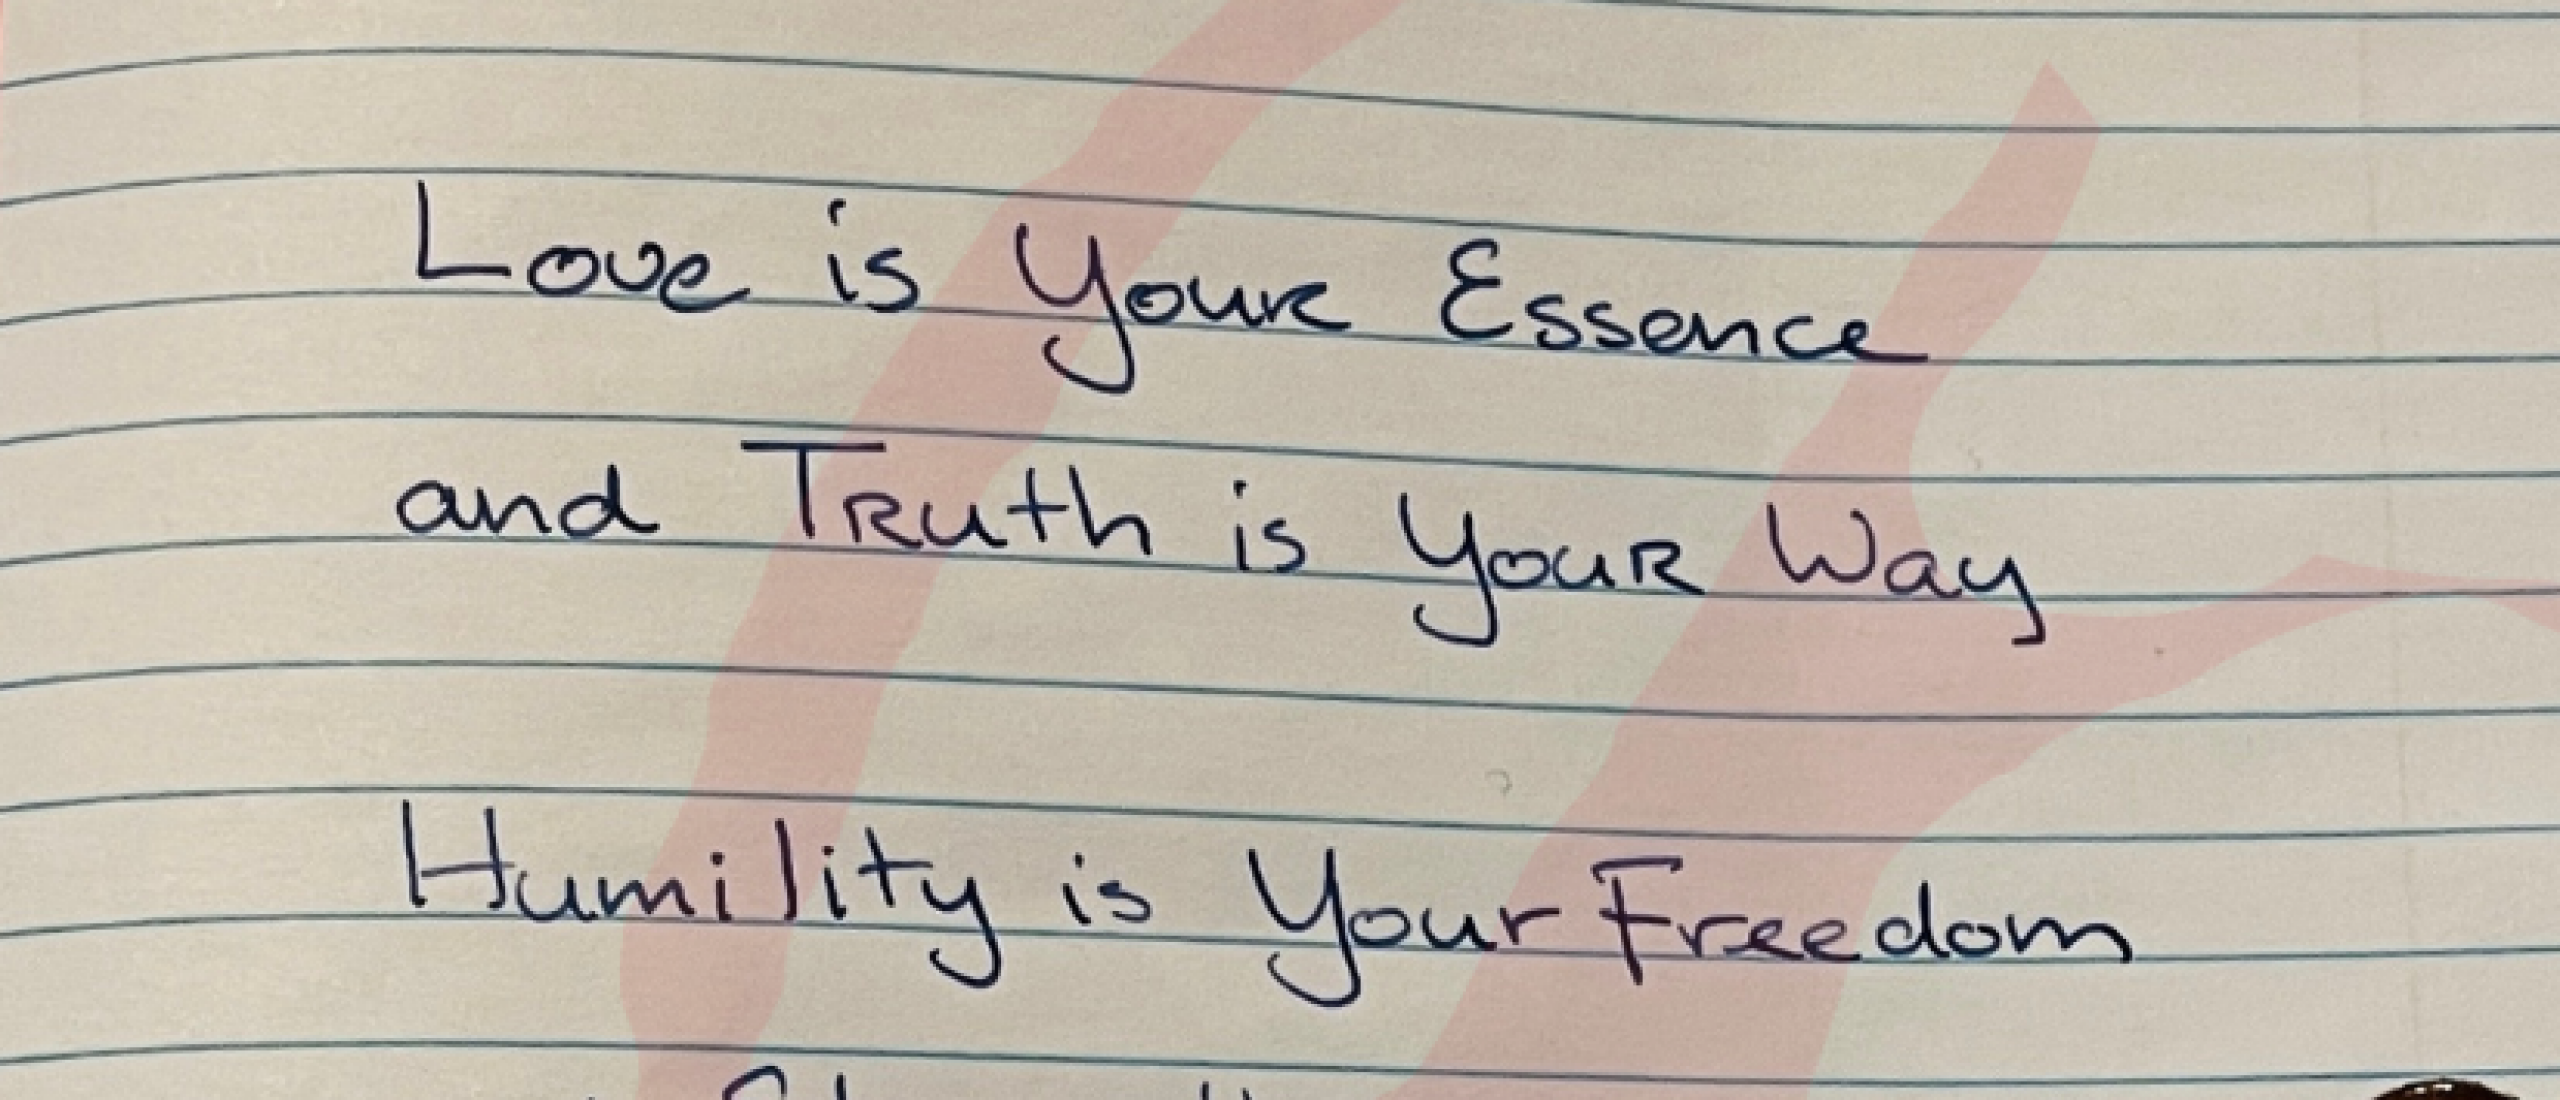 Love is Your Essence
and Truth is Your Way
Humility is Your Freedom